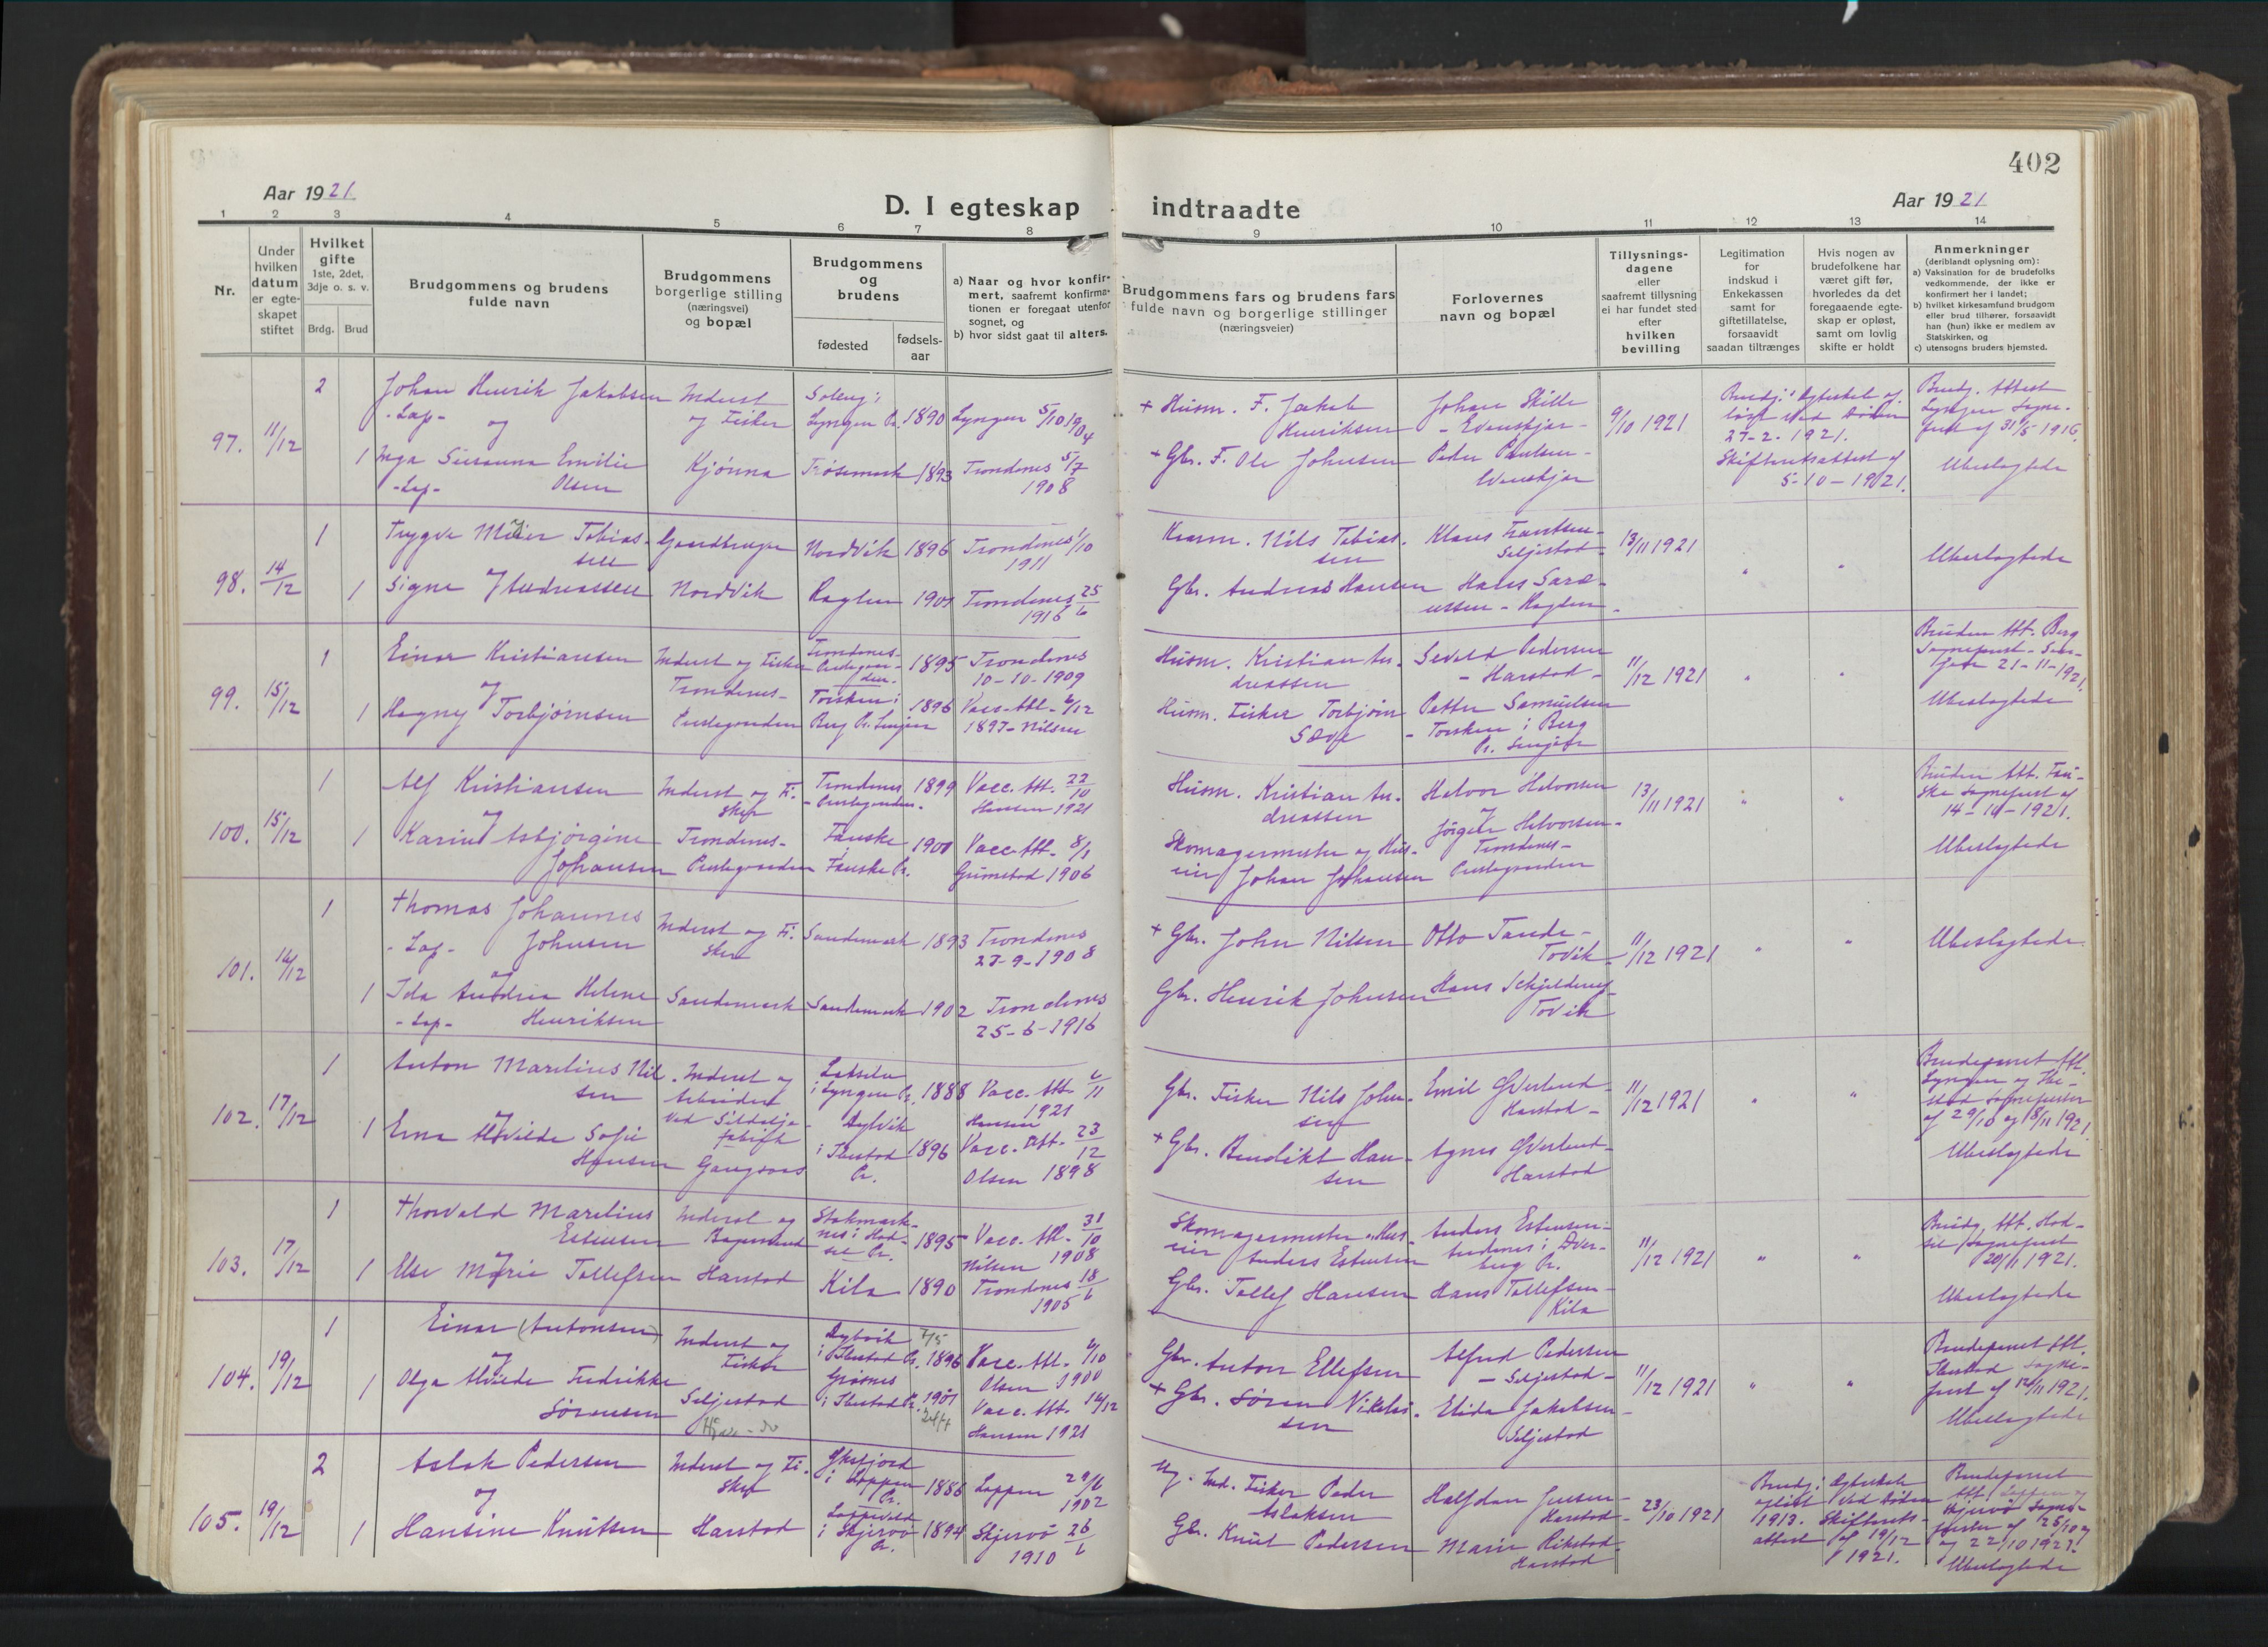 402
Aar 1921.
Aar 1921
D. I egteskap indtraadte
1 2 3 4 5 6 7 8 9 10 11 12 13 14
Nr.
Under
hvilken
datum
er egte-
skapet
stiftet
Hvilket
gifte
1ste, 2det,
3dje o. s. v.
Brdg. Brud
Brudgommens og brudens
fulde navn
Brudgommens
borgerlige stilling
(næringsvei)
og bopæl
Brudgommens
og
brudens
fødested
fødsels-
aar
a) Naar og hvor konfir-
mert, saafremt konfirma-
tionen er foregaat utenfor
sognet, og
b) hvor sidst gaat til alters.
Brudgommens fars og brudens fars
fulde navn og borgerlige stillinger
(næringsveier)
Forlovernes
navn og bopæl
Tillysnings-
dagene
eller
saafremt tillysning
ei har fundet sted
efter
hvilken
bevilling
Legitimation
for
indskud i
Enkekassen
samt for
giftetillatelse,
forsaavidt
saadan tiltrænges
Hvis nogen av
brudefolkene har
været gift før,
hvorledes da det
foregaaende egte-
skap er opløst,
samt om lovlig
skifte er holdt
Anmerkninger
(deriblandt oplysning om):
a) Vaksination for de brudefolks
vedkommende, der ikke er
konfirmert her i landet;
b) hvilket kirkesamfund brudgom
eller brud tilhører, forsaavidt
han (hun) ikke er medlem av
Statskirken, og
c) utensogns bruders hjemsted.
97. 11/12
2
Johan Henrik Jakobsen
-Lap- og
1
Inga Susanna Emilie
-Lap- Olsen
Inderst
og Fisker
Kjønna
Lyngen Pr. 1890
Trøsemark 1893
Lyngen 5/10 1904
Trondenes 5/7
1908
+ Husm. F. Jakob
Henriksen
+ Gbr. F. Ole Johnsen
Johan Skille
- Evenskjær -
Peder Paulsen -
Evenskjær
9/10 1921
Brudg: Egteskab op-
løst ved Døden
27-2. 1921.
Skifteretsattest af
5-10-1921.
Brudg. Attest
Lyngen Sogne-
prest af 31/5 1916.
Ubeslægtede
98. 14/12
1
Trygve Meier Tobias-
sen
1
Signe Andreassen
Gaardbruger
Nordvik
Nordvik 1896
1901
Trondenes 1/10
1911
Trondenes 25/6
1916
Nils Tobias-
sen
Gbr. Andreas Hansen
Klaus Frantsen -
Seljestad -
Hans
13/11 1921
Ubeslægtede
99. 15/12
1
Einar Kristiansen
og
1
Hagny Torbjørnsen
Inderst og Fisker
Trondenes-
Prestegaarden
Trondenes-
Prestegaar-
den. 1895
Torsken i
Berg Pr. Senjen 1896
Trondenes
10-10-1909
Vacc-Att. 6/12
1897-Nilsen
Husm. Kristian An-
dreassen
Husm. Fisker Torbjørn
Sevald Pedersen
- Harstad -
Petter Samuelsen
- Torsken i Berg
Pr. Senjen
11/12 1921
Bruden Att. Berg
Sogneprest - Sen-
jen 21-11-1921.
Ubeslægtede
100. 15/12
1
Alf Kristiansen
og
1
Karine Asbjørgine
Johansen
Inderst og Fi-
sker
Trondenes-
Prestegaarden
Trondenes 1899
- Prestegaarden.
Fauske
Fauske Pr. 1901
Vacc. Att. 22/10
Hansen 1921
Vacc Att. 8/1
Grimstad 1906
Husm. Kristian An-
dreassen
Skomagermester og Hus-
eier Johan Johansen
Halvor Halvorsen
og
Jørgen Halvorsen -
Trondenes-
Prestegaarden
13/11 1921
Bruden Att. Fau-
ske Sogneprest af
14-10-1921.
Ubeslægtede
101. 16/12
1
Thomas Johannes
-Lap- Johnsen
og
1
Ida Andrea Helene
-Lap- Henriksen
Inderst og Fi-
sker
Sandemark
Sandemark 1893
Sandemark 1902
Trondenes
27-9-1908
Trondenes
25-6-1916
+ Gbr. John Nilsen
Gbr. Henrik Johnsen
Otto Tande-
Tovik -
Hans Schjelderup-
Tovik
11/12 1921
Ubeslægtede
102. 17/12
1
Anton Marelius Nil-
sen
og
1
Erna Alvilde Sofie
Hansen
Inderst og
Arbeider
ved Sildolje-
fabrik
Gangsaas
Lakselv
i Lyngen Pr. 1888
Dylvik
i Ibestad 1896
Pr.
Vacc. Att. 6/11
1921
Hansen
Vacc. Att. 23/12
Olsen 1898
Gbr. Fisker Nils John-
sen
+ Gbr. Benedikt Han-
sen
Emil Overlund
Harstad -
Agnes Overlund -
Harstad
11/12 1921
Brudeparret Att.
Lyngen og Ibe-
stad Sogneprester
af 29/10 og 18/11 1921.
Ubeslægtede
103. 17/12
1
Thorvald Marelius
Estensen
og
1
Else Marie Tollefsen
Inderst og
Bagersvend
Harstad
Stokmark-
nes i Had-
sel Pr. 1895
Kila 1890
Vacc. Att. 31/10
Nilsen 1908
Trondenes 18/6
1905
Skomagermester og Hus-
eier Anders Estensen
Gbr. Tollef Hansen
Anders Estensen -
Andenes i Dver-
berg Pr.
Hans Tollefsen -
Kila
11/12 1921
Brudg. Att. Had-
sel Sogneprest
20/11 1921.
Ubeslægtede
104. 19/12
1
Einar (Antonsen)
og
1
Olga Alvilde Fredrikke
Sørensen
Inderst og
Fisker
Seljestad
Dybvik 7/5
i Ibestad Pr. 1896
Grasnes
i Ibestad Pr. 1901
Vacc. Att. 6/10
Olsen 1900
Vacc. Att. 14/12
Hansen 1921
Gbr. Anton Ellefsen
+ Gbr. Søren Nikolai-
sen
Alfred Pedersen
- Seljestad -
Elida Jakobsen -
Seljestad
11/12 1921
Brudeparret Att.
Ibestad Sogne-
prest af 12/11 1921.
Ubeslægtede
105. 19/12
2
Aslak Pedersen
og
1
Hansine Knutsen
Inderst og Fi-
sker
Harstad
Øksfjord
i Loppen
Pr. 1886
i Skjervø 1894
Pr.
Loppen 29/6
1902
Skjervø 26/6
1910
Ind. Fisker Peder
Aslaksen
Gbr. Knut Pedersen
Halfdan Jensen -
Harstad -
Marie Rikstad -
Harstad
23/10 1921
Brudg: Egteskab
opløst ved Døden
1919. Skifterets-
attest af 19/12
1921.
Brudeparret
Att. Loppen og
Skjervø Sogne-
prester af 25/10
og 22/10 1921.
Ubeslægtede